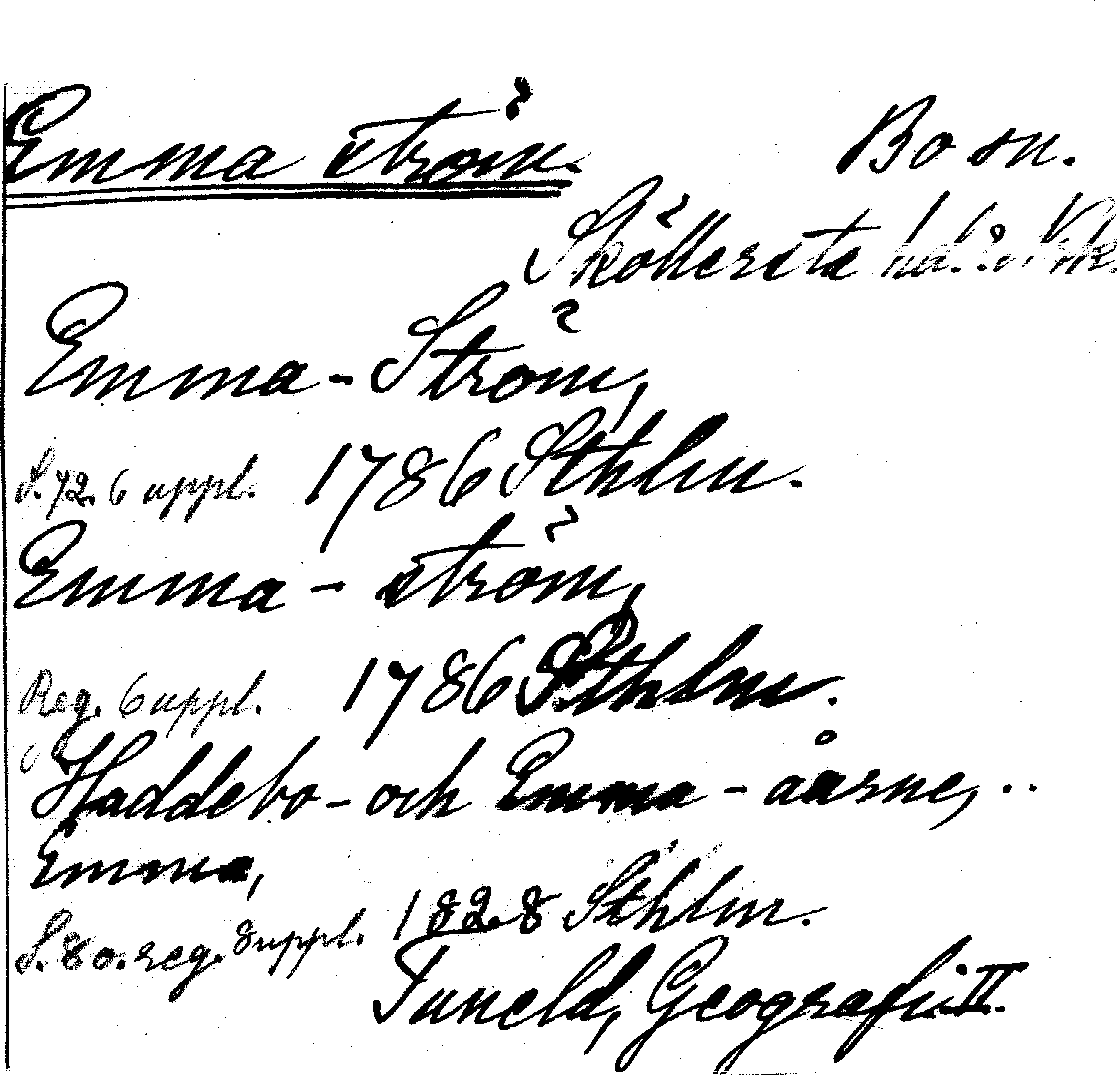 Emma ström.
Bo sn.
Sköllersta hd. Nrk.
Emma-Ström,
S. 72. 6 uppl. 1786 Sthlm.
Emma-ström,
Reg. 6 uppl. 1786 Sthlm.
Haddebo-och Emma-åarne, ..
Emma,
S. 80. reg. 8 uppl. 1828 Sthlm.
Tuneld, Geografi II.